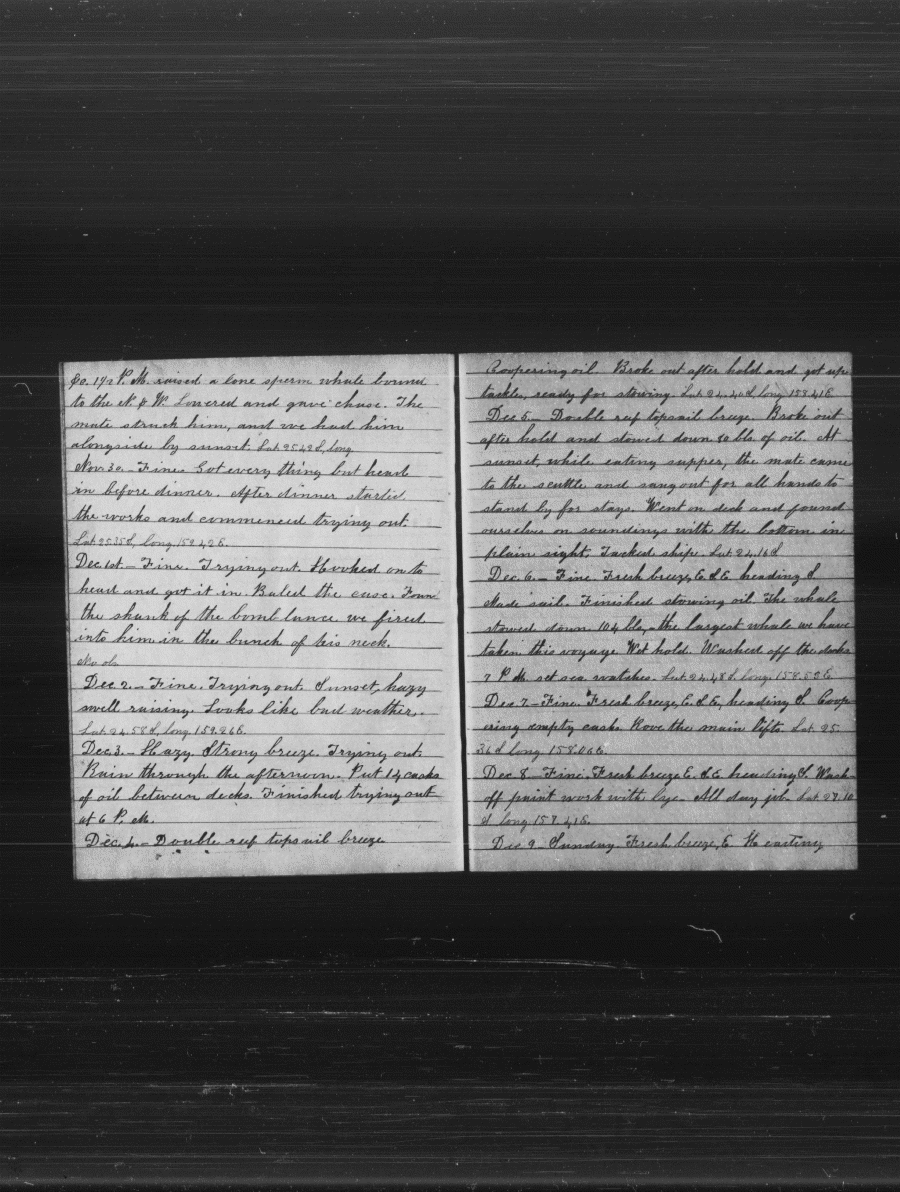 P. M. raised a lone sperm whale bound
to the N & W. Lowered and gave chase. The
mate struck him, and we had him
alongside by sunset. Lat 25.42 S, long
Nov 30.- Fine. Got every thing but head
in before dinner. After dinner started
the works and commenced trying out.
Lat. 25.35 S, long, 159.42 E.
Dec. 1st.- Fine. Trying out. Hooked on to
head and got it in. Baled the case. Foun
the shank of the bomb lance we fired
into him in the bunch of his neck.
No obs.
Dec 2.- Fine. Trying out. Sunset, hazy
swell raising. Looks like bad weather.
Lat. 24.58 S, long, 159.26 E.
Dec. 3.- Hazy. Strong breeze. Trying out.
Rain through the afternoon. Put 14 casks
of oil between decks. Finished trying out
at 6 P. M.
Dec. 4.- Double reef topsail breeze
Coopering oil. Broke out after hold and got up
tackles, ready for stowing. Lat. 24.40 S, long 158.41 E.
Dec 5.- Double reef topsail breeze. Broke out
after hold and stowed down bls. of oil. At
sunset, while eating supper, the mate came
to the scuttle and sang out for all hands to
stand by for stays. Went on deck and found
ourselves on soundings with the bottom in
plain sight. Tacked ship. Lat. 24.16 S
Dec 6.- Fine. Fresh breeze, E. S. E. heading S.
Made sail. Finished stowing oil. The whale
stowed down 104 bls,- the largest whale we have
taken this voyage. Wet hold. Washed off the decks
7 P. M. set sea watches. Lat. 24.48 S, long. 158.52 E
Dec 7.- Fine. Fresh breeze E. S. E., heading S. Coop
ering empty cask. Rove the main lifts. Lat. 25.
36 S, long 158.06 E.
Dec 8.- Fine. Fresh breeze E. S. E. heading S. Wash-
off paint work with lye. All day job. Lat 27.10
S, long. 157.41 E.
Dec 9. Sunday. Fresh breeze, E. casting